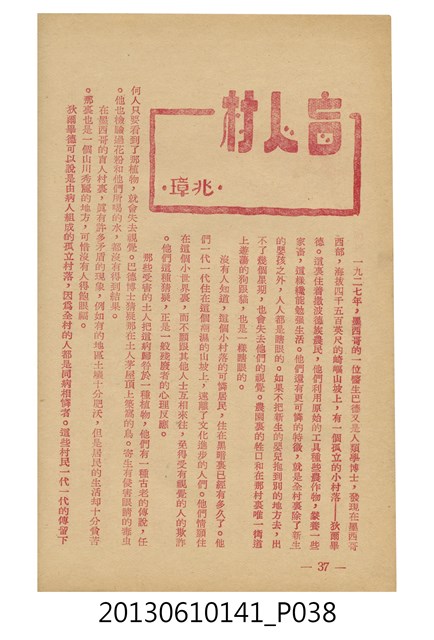 盲人村
·兆璋·
一九二七年，墨西哥的一位醫生巴德又是人類學博士，發現在墨西哥
西部，海拔四千五百英尺的崎嶇山坡上，有一個孤立的小村落——狄爾畢
德。這裏住着撒波德族農民，他們利用原始的工具種些農作物，豢養一些
家畜，這樣纔能勉强生活。他們還有更可憐的特徵，就是全村裏除了新生
的嬰孩之外，人人都是瞎眼的。如果不把新生的嬰兒抱到別的地方去，出
不了幾個星期，也會失去他們的視覺。農園裏的牲口和在那村裏唯一街道
上遊蕩的狗跟貓，也是一樣瞎眼的。
沒有人知道，這個小村落的可憐居民，住在黑暗裏已經有多久了。他
們一代一代住在這個潮濕的山坡上，遠離了文化進步的人們。他們情願住
在這個小世界裏，而不願跟其他人士互相來往，免得受有視覺的人的欺詐
。他們這種猜疑，正是一般殘廢者的心理反應。
那些受害的土人把這病歸咎於一種植物，他們有一種古老的傳說，任
何人只要看到了那植物，就會失去視覺。巴德博士猜疑那在土人茅屋頂上築窩的鳥。寄生有侵害眼睛的毒虫
。他也檢驗過花粉和他們所喝的水，都沒有得到結果。
在墨西哥的盲人村裏，眞有許多矛盾的現象，例如有的地區土壤十分肥沃，但是居民的生活却十分貧苦
。那裏也是一個山川秀麗的地方，可惜沒有人得飽眼福。
狄爾畢德可以說是由病人組成的孤立村落，因爲全村的人都是同病相憐者。這些村民一代一代的傳留下
— 37 —
20130610141_P038